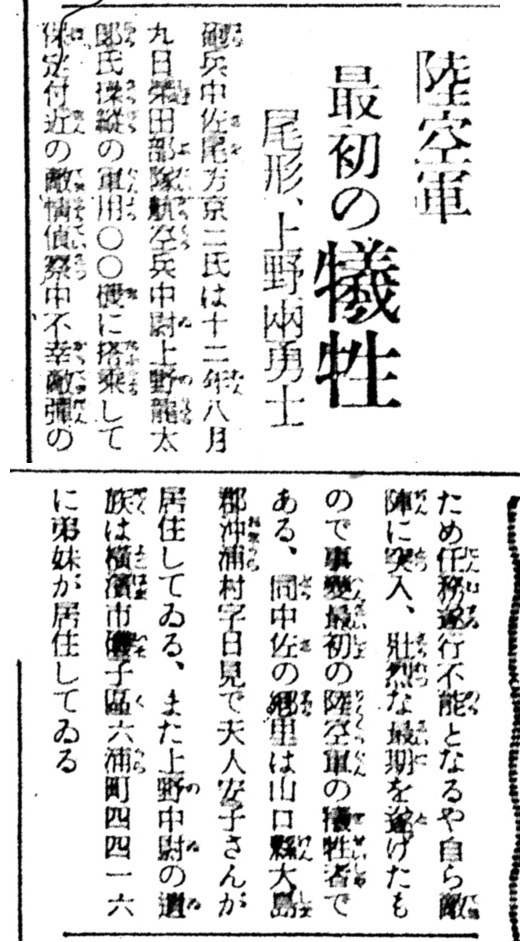 陸空軍
最初の犠牲
尾形、上野兩勇士
砲兵中佐尾方京二氏は十二年八月
九日柴田部隊航空兵中尉上野龍太
郎氏操縱の軍用〇〇機に搭乘して
保定付近の敵情偵察中不幸敵彈の
ため任務遂行不能となるや自ら敵
陣に突入、壯烈な最期を遂げたも
ので事變最初の陸空軍の犠牲者で
ある、同中佐の郷里は山口縣大島
郡沖浦村字日見で夫人安子さんが
居住してゐる、また上野中尉の遺
族は横濱市磯子區六浦町四四一六
に弟妹が居住してゐる